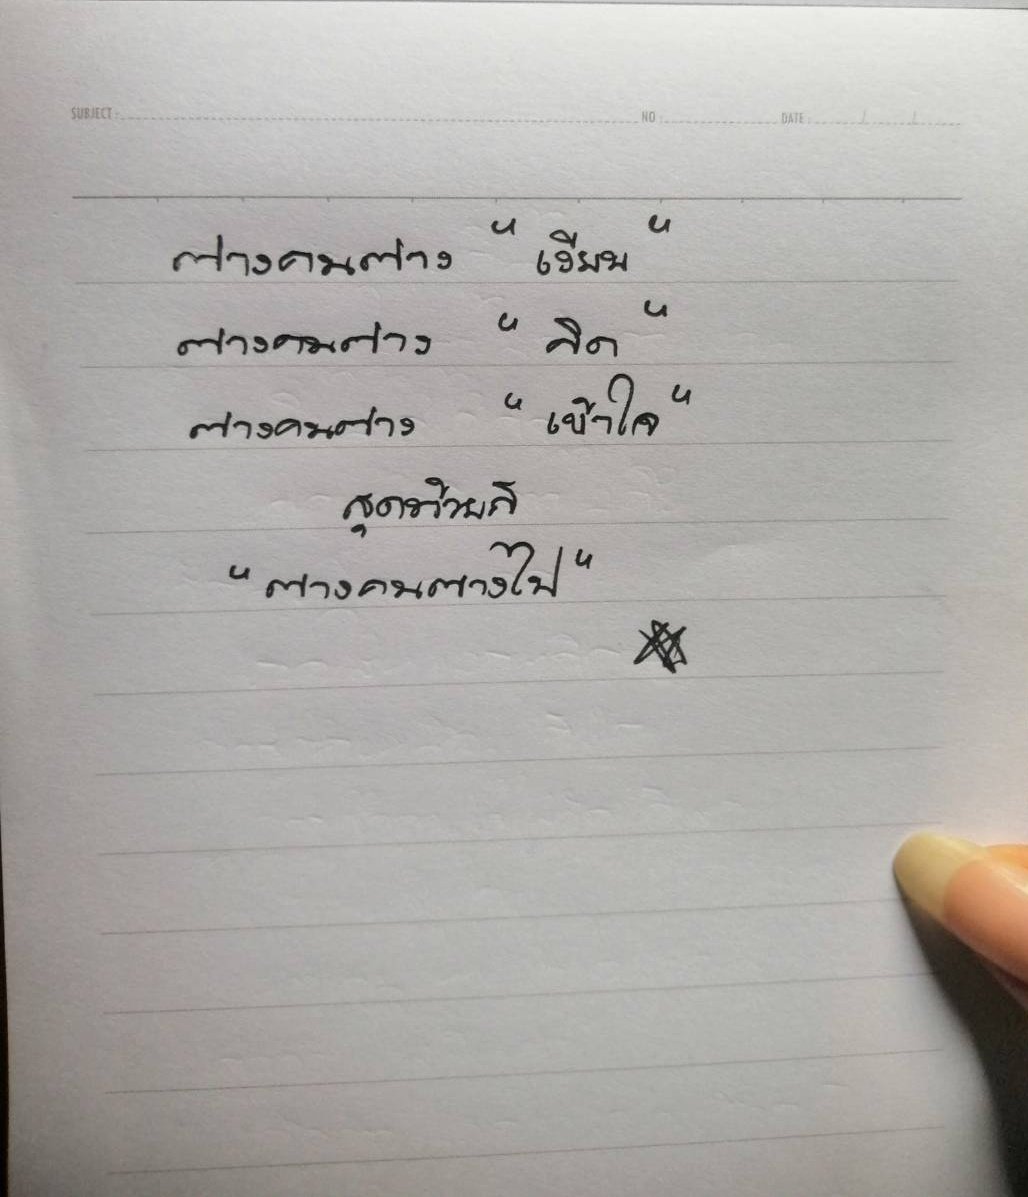 SUBJECT : NO : DATE : / /
ต่างคนต่าง "เงียบ"
ต่างคนต่าง "คิด"
ต่างคนต่าง "เข้าใจ"
สุดท้ายก็
"ต่างคนต่างไป"